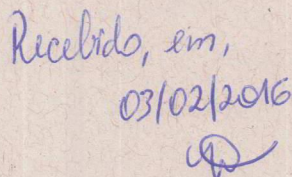 Recebido, em,
03/02/2016